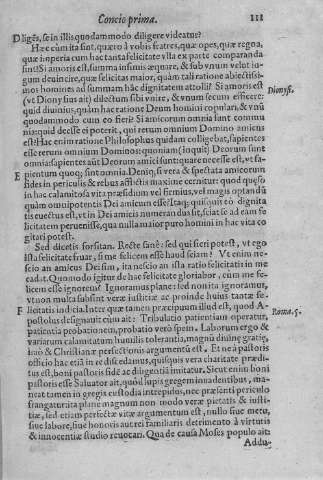 Concio prima. 111
D liges, se in illis quodammodo diligere videatur?
Hæc cùm ita sint, quæro à vobis fratres, quæ opes, quæ regna,
quæ imperia cum hac tanta felicitate vlla ex parte comparanda
sint? Si amoris est, summa infimis æquare, & sub vnum velut iu-
gum deuincire, quæ felicitas maior, quàm tali ratione abiectissi-
mos homines ad summam hâc dignitatem attolli? Si amoris est
(vt Dionysius ait) dilectum sibi vnire, & vnum secum efficere:
quid diuinius, quàm hac ratione Deum homini copulari, & vnū
quodammodo cum eo fieri? Si amicorum omnia sunt commu
nia: quid deesse ei poterit, qui rerum omnium Domino amicus
est? Hac enim ratione Philosophus quidam colligebat, sapientes
esse rerum omnium Dominos: quoniam (inquit) Deorum sunt
omnia: sapientes aūt Deorum amici sunt: quare necesse est, vt sa-
E pientum quoq; sint omnia. Deniq; si vera & spectata amicorum
fides in periculis & rebus afflictis maximè cernitur: quod quęso
in hac calamitosa vita præsidium vel firmius, vel magis optandū
quàm omnipotentis Dei amicum esse? Itaq; quisquis eò dignita
tis euectus est, vt in Dei amicis numerandus sit, sciat se ad eam fe
licitatem peruenisse, qua nulla maior puro homini in hac vita co
gitari potest.
Sed dicetis forsitan. Rectè sanè: sed qui fieri potest, vt ego
ista felicitate fruar, si me felicem esse haud sciam? Vt enim ne-
scio an amicus Dei sim, ita nescio an ista ratio felicitatis in me
cadat. Quomodo igitur de hac felicitate gloriabor, cùm me fe-
licem esse ignorem? Ignoramus planè: sed non ita ignoramus,
vt non multa subsint veræ iustitiæ ac proinde huius tantæ fe-
F licitatis indicia. Inter quæ tamen præcipuum illud est, quod A-
postolus designauit cum ait: Tribulatio patientiam operatur,
patientia probationem, probatio verò spem. Laborum ergo &
variarum calamitatum humilis tolerantia, magnū diuinę gratię,
imò & Christianæ perfectionis argumentū est. Et ne à pastoris
officio hac etiā in re discedamus, quisquis vera charitate prædi-
tus est, boni pastoris fidē ac diligentiā imitatur. Sicut enim boni
pastoris esse Saluator ait, quod lupis gregem inuadentibus, ma-
neat tamen in gregis custodia intrepidus, nec præsenti periculo
frangatur: ita planè magnum non modò veræ pietatis & iusti-
tiæ, sed etiam perfectæ vitæ argumentum est, nullo siue metu,
siue labore, siue honoris aut rei familiaris detrimento à virtutis
& innocentiæ studio reuocari. Qua de causa Moses populo ait:
Addu-
Dionys.
Roma. 5.